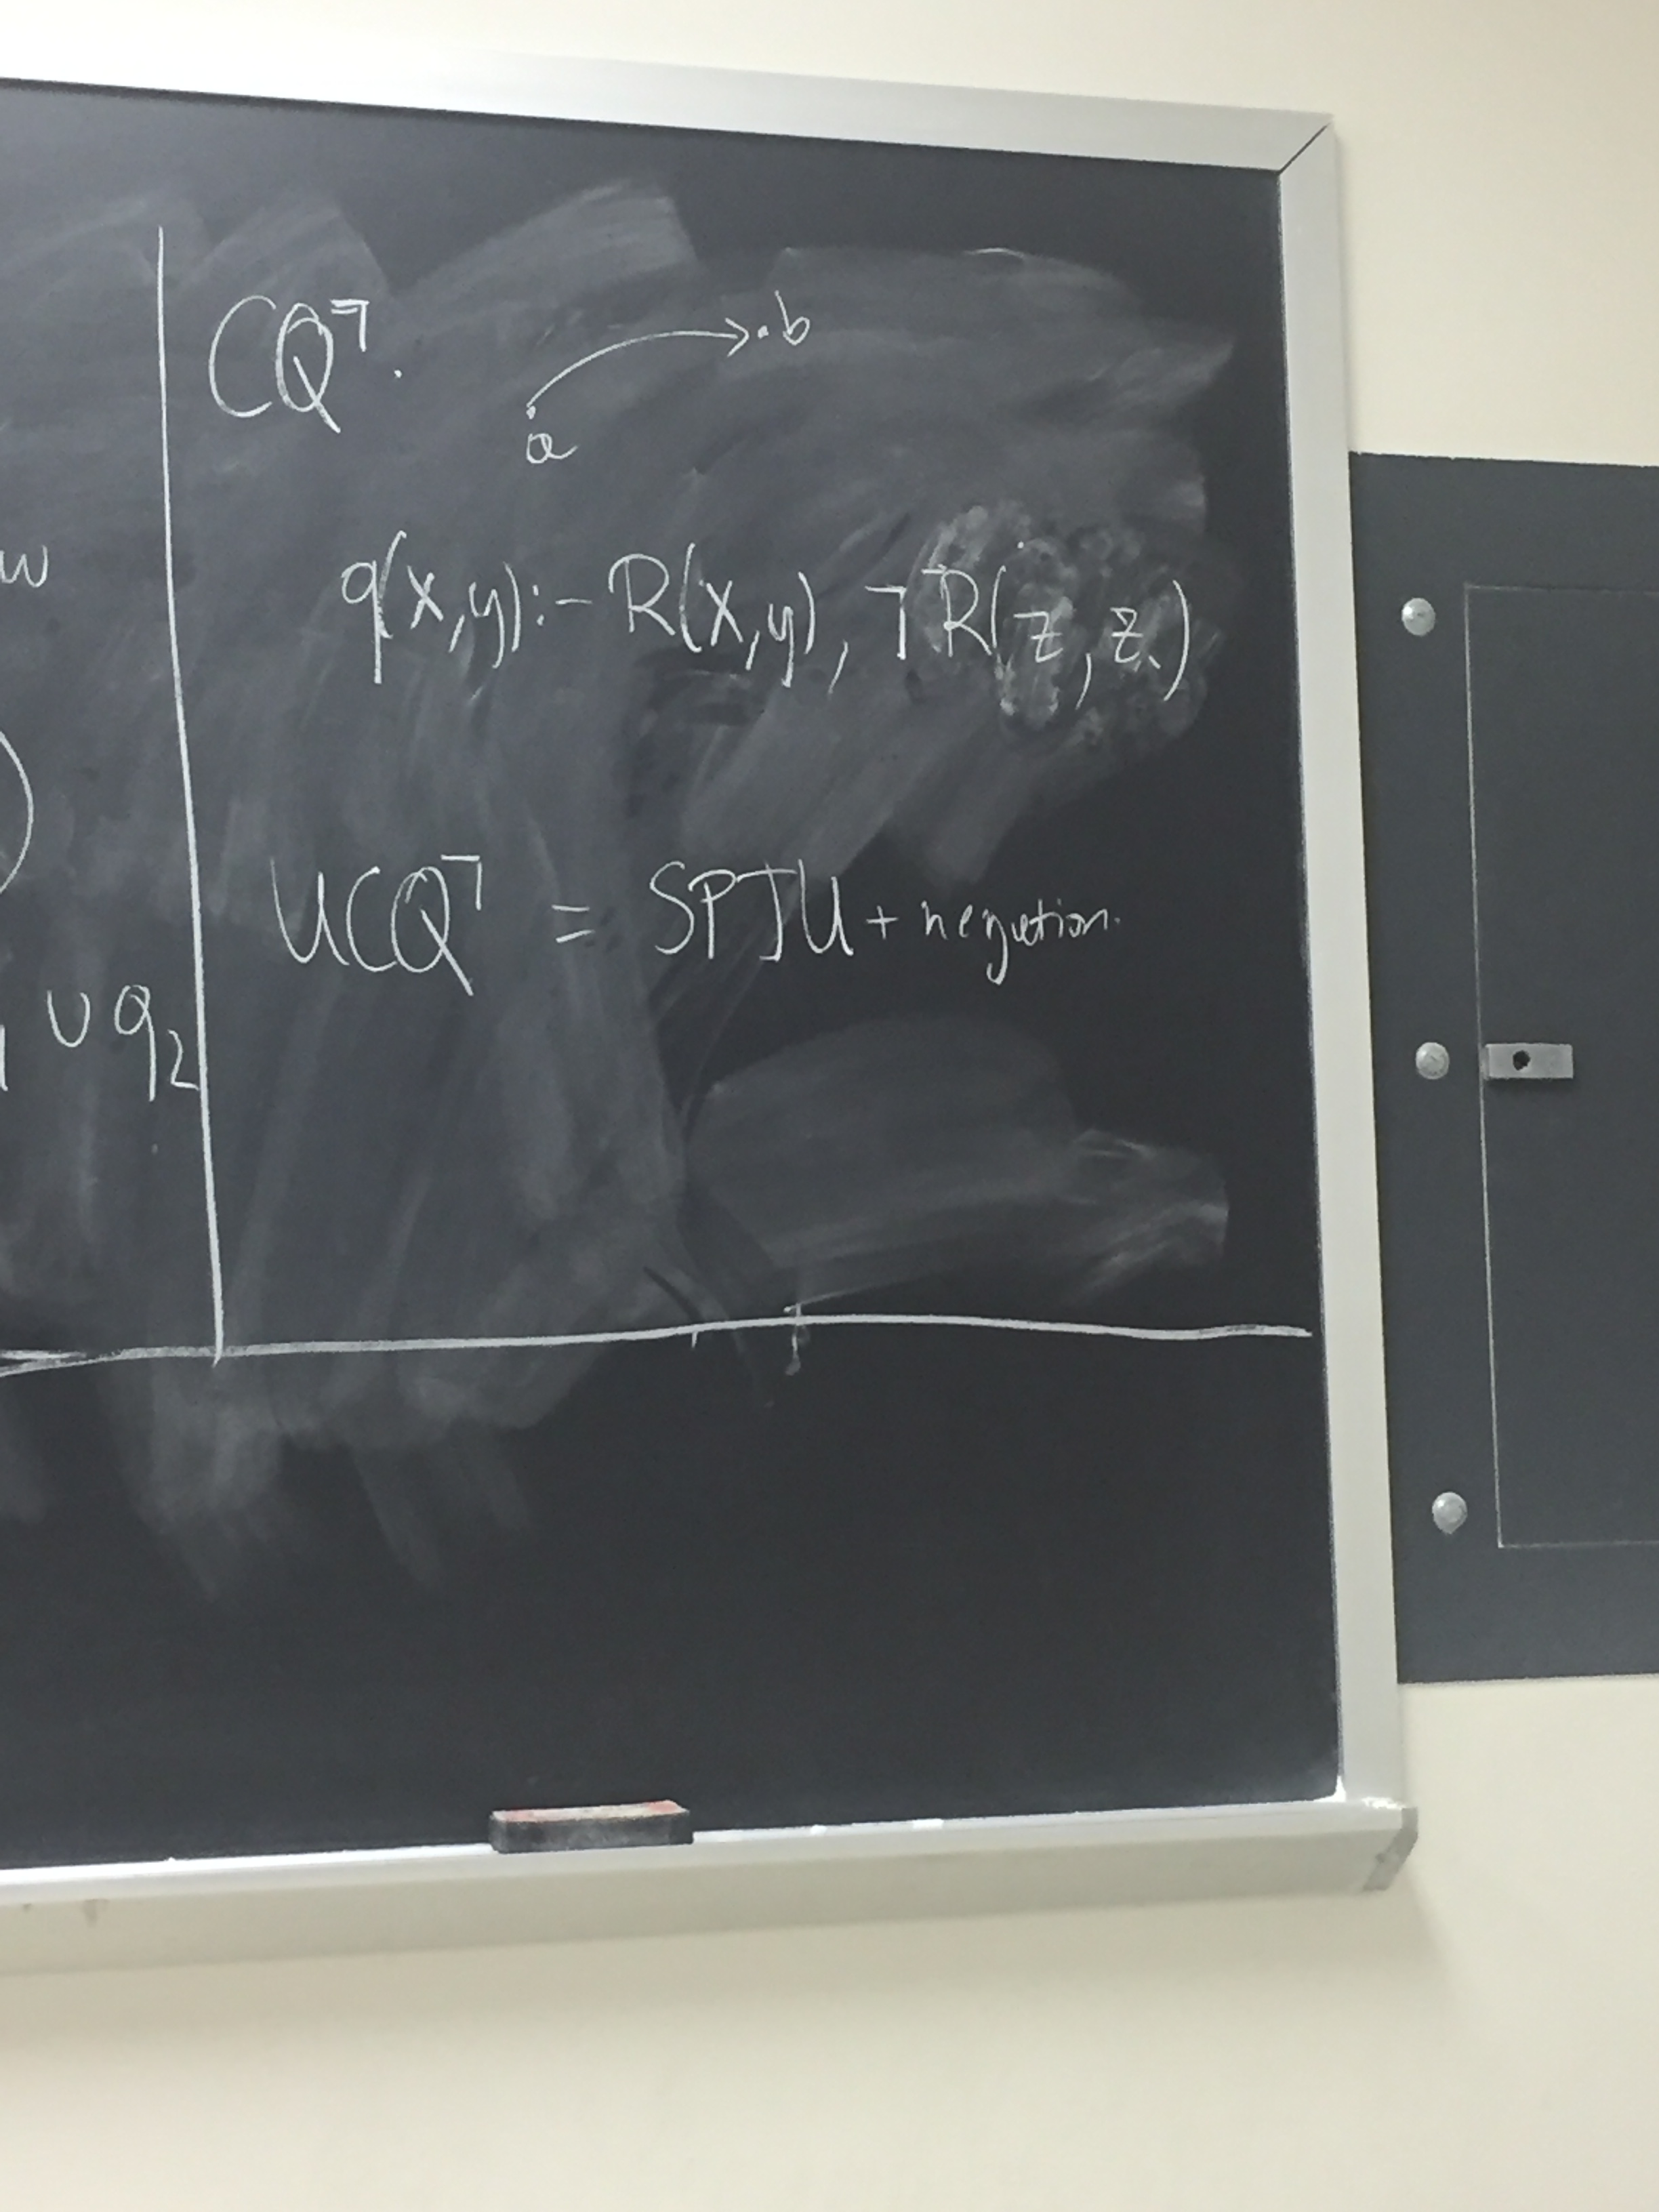 w
∪ q₂
CQ¬.
a → b
q(x,y):- R(x,y), ¬R(z,z)
UCQ¬ = SPJU + negation.